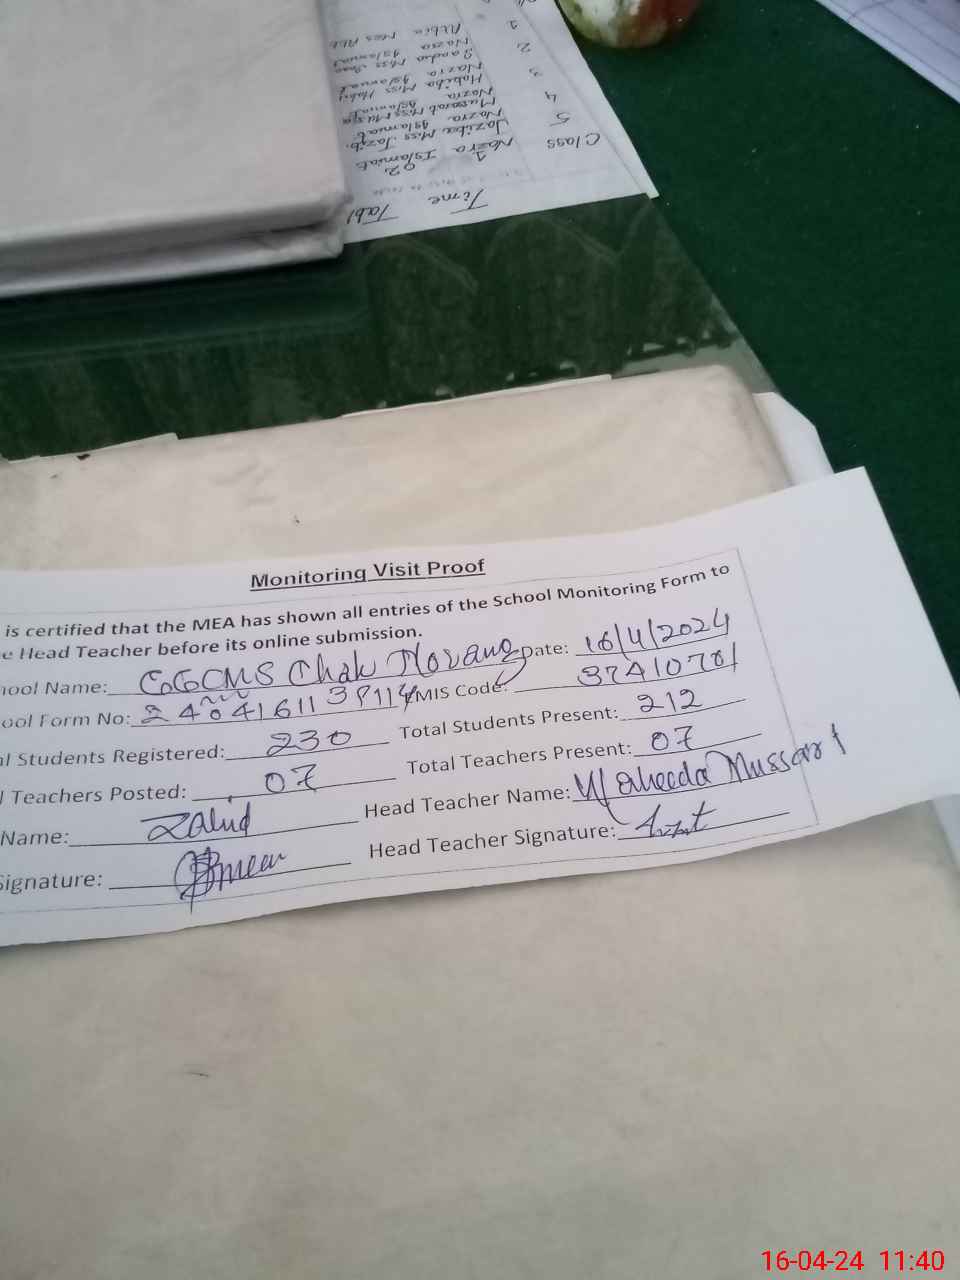 Time Tabl
1 02
Class Nazra Islamiat
5 Jaziba Miss Jazib.
Nazra Islamiat
4 Mussarab Miss Mussa
Nazra Islamiat
3 Habiba Miss Habi
Nazra Islamiat
2
Nazra
1
Monitoring Visit Proof
is certified that the MEA has shown all entries of the School Monitoring Form to
e Head Teacher before its online submission.
hool Name: GGCMS Chak Norang Date: 16/4/2024
ool Form No: MIS Code: 37410781
l Students Registered: 230 Total Students Present: 212
l Teachers Posted: 07 Total Teachers Present: 07
Name: Head Teacher Name: Waheeda Mussarat
Signature: Head Teacher Signature:
16-04-24 11:40